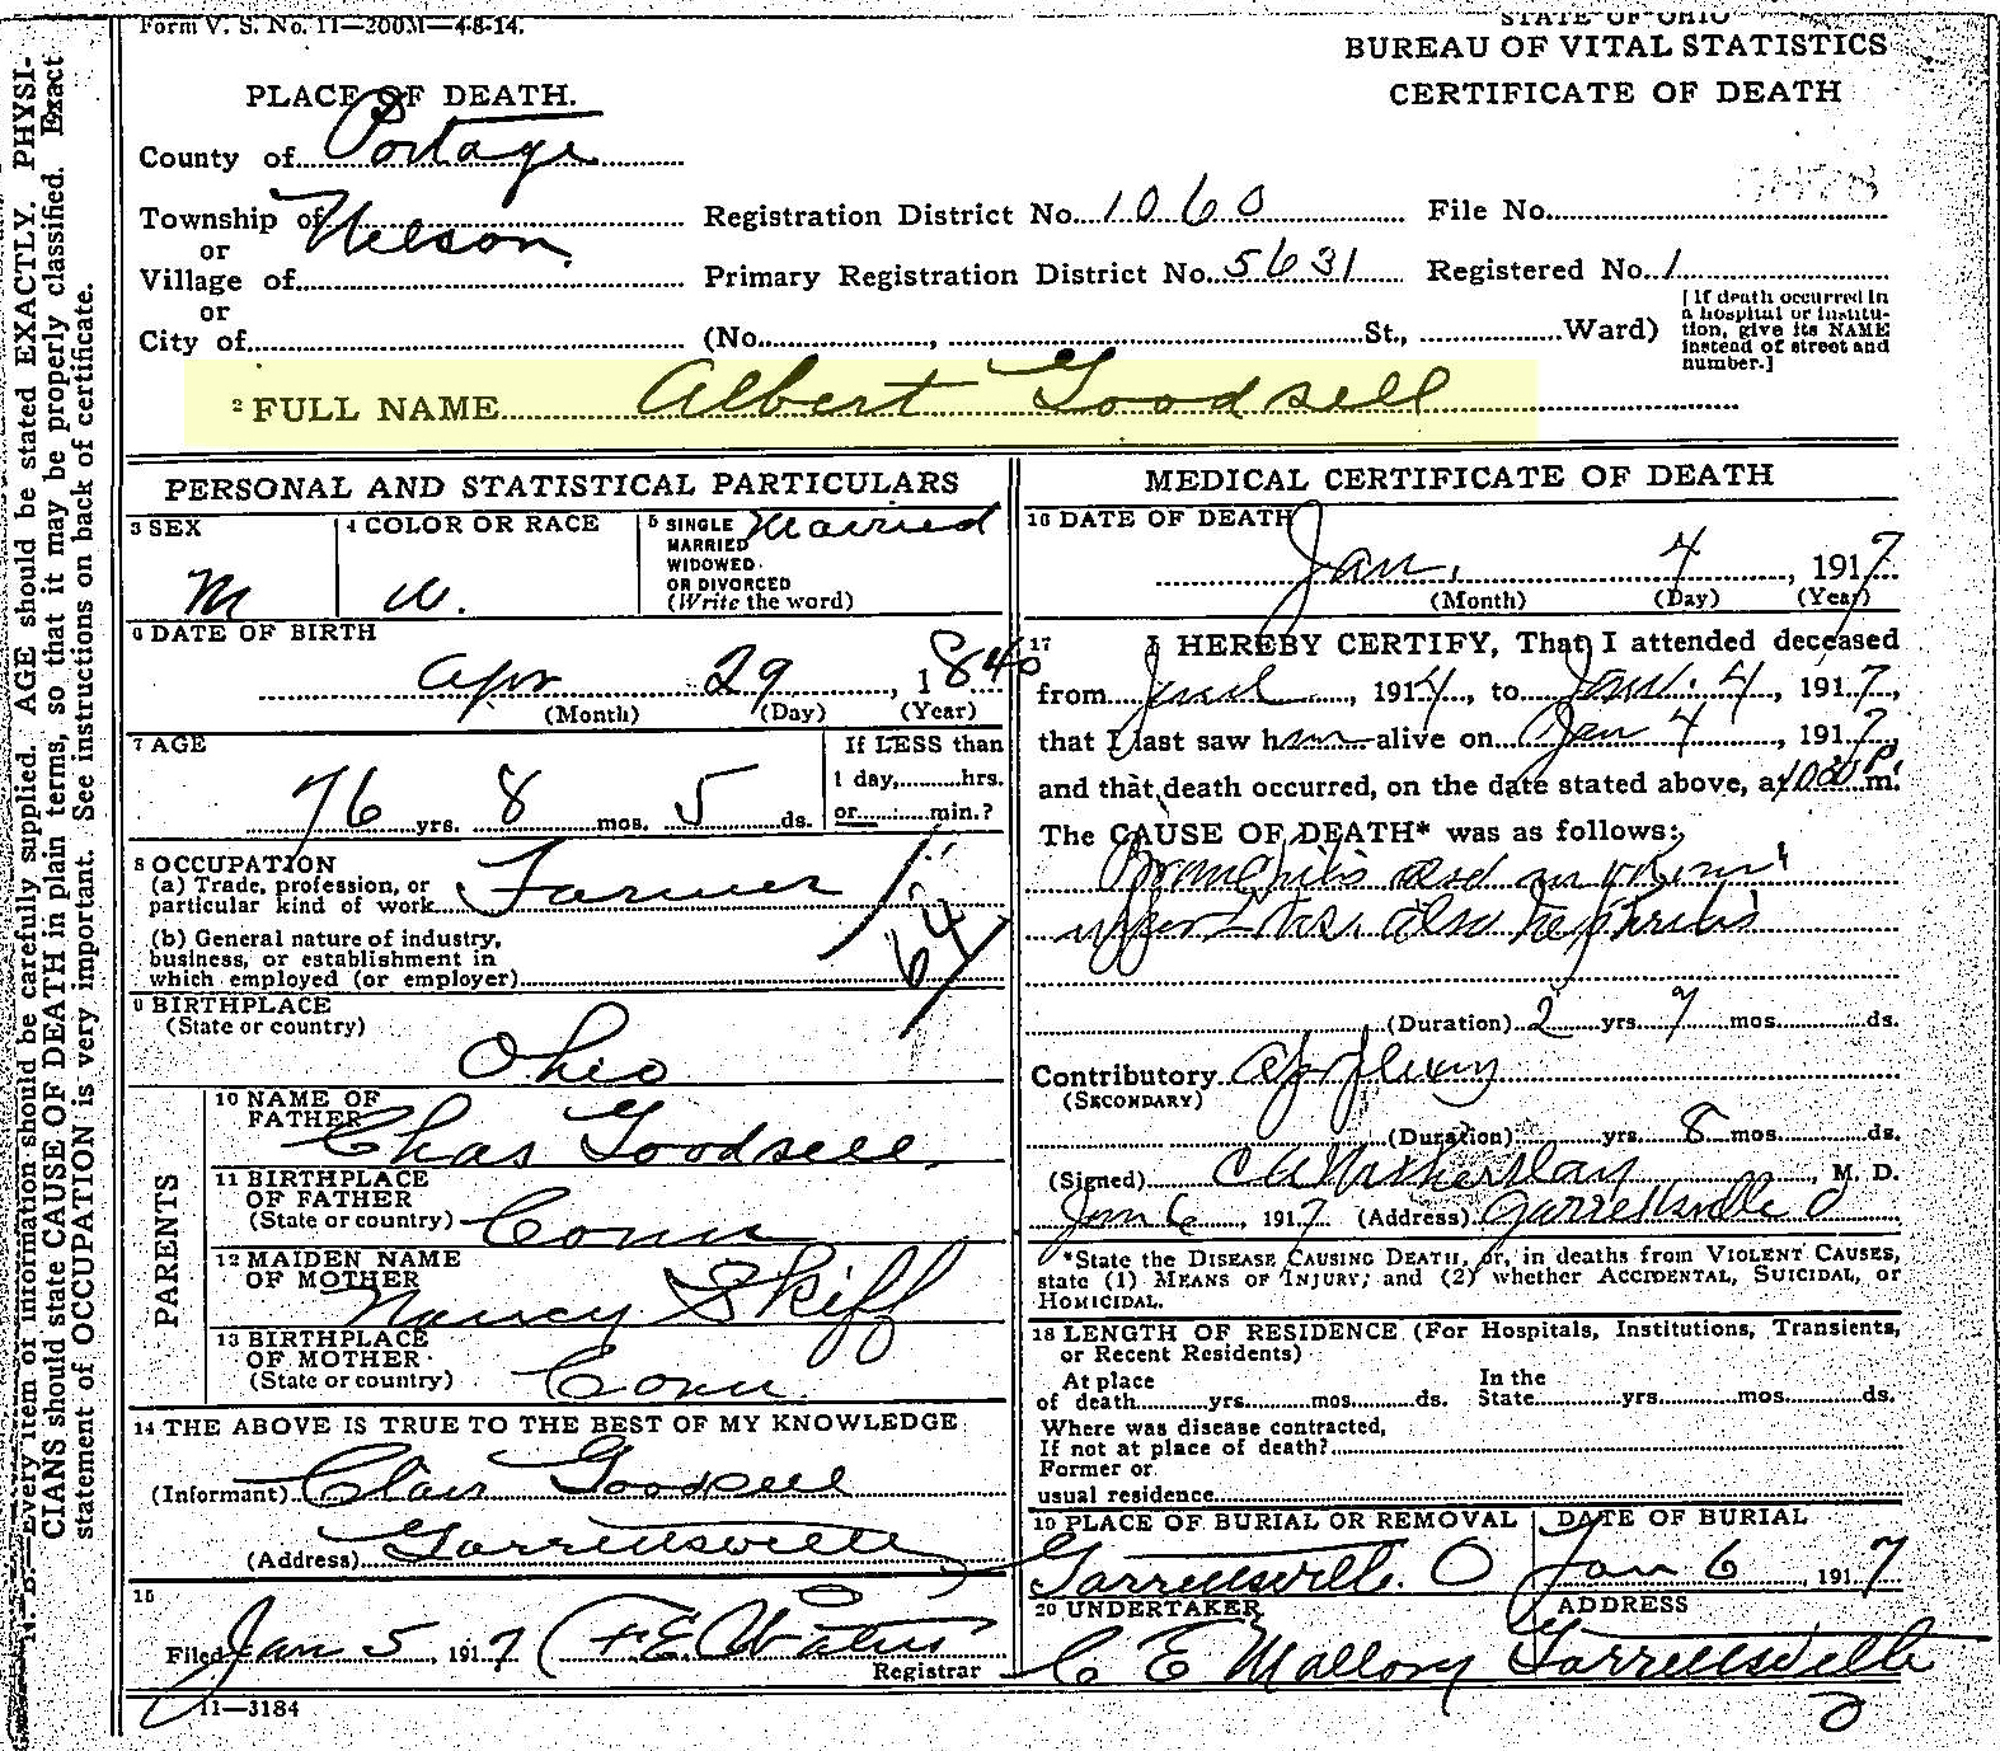 Form V. S. No. 11—200M—4-8-14.
STATE OF OHIO
BUREAU OF VITAL STATISTICS
CERTIFICATE OF DEATH
PLACE OF DEATH.
County of Portage
Township of Nelson.
or
Village of
or
City of
Registration District No. 1060
File No.
Primary Registration District No. 5631
Registered No. 1
(No. , St., Ward)
[If death occurred in
a hospital or institu-
tion, give its NAME
instead of street and
number.]
2 FULL NAME Albert Goodsell
PERSONAL AND STATISTICAL PARTICULARS
3 SEX
M
4 COLOR OR RACE
W.
5 SINGLE
MARRIED
WIDOWED
OR DIVORCED
(Write the word)
Married
6 DATE OF BIRTH
Apr 29, 1840
(Month) (Day) (Year)
7 AGE
76 yrs. 8 mos. 5 ds.
If LESS than
1 day, hrs.
or min.?
8 OCCUPATION
(a) Trade, profession, or
particular kind of work Farmer
(b) General nature of industry,
business, or establishment in
which employed (or employer)
64
9 BIRTHPLACE
(State or country)
Ohio
PARENTS
10 NAME OF
FATHER
Chas Goodsell
11 BIRTHPLACE
OF FATHER
(State or country) Conn
12 MAIDEN NAME
OF MOTHER
Nancy Skiff
13 BIRTHPLACE
OF MOTHER
(State or country) Conn.
14 THE ABOVE IS TRUE TO THE BEST OF MY KNOWLEDGE
(Informant) Clair Goodsell
(Address) Garrettsville O
15
Filed Jan 5, 1917 F.E. Waters
Registrar
11—3184
MEDICAL CERTIFICATE OF DEATH
16 DATE OF DEATH
Jan. 4, 1917
(Month) (Day) (Year)
17 I HEREBY CERTIFY, That I attended deceased
from , 1914, to Jan. 4, 1917,
that I last saw him alive on Jan 4, 1917,
and that death occurred, on the date stated above, at P. m.
The CAUSE OF DEATH* was as follows:
Bronchitis and
upper also Nephritis
(Duration) 2 yrs. 7 mos. ds.
Contributory Apoplexy
(SECONDARY)
(Duration) yrs. 8 mos. ds.
(Signed) , M. D.
Jan 6, 1917 (Address) Garrettsville O
*State the DISEASE CAUSING DEATH, or, in deaths from VIOLENT CAUSES,
state (1) MEANS OF INJURY; and (2) whether ACCIDENTAL, SUICIDAL, or
HOMICIDAL.
18 LENGTH OF RESIDENCE (For Hospitals, Institutions, Transients,
or Recent Residents)
At place
of death yrs. mos. ds.
In the
State yrs. mos. ds.
Where was disease contracted,
If not at place of death?
Former or
usual residence
19 PLACE OF BURIAL OR REMOVAL
Garrettsville. O
DATE OF BURIAL
Jan 6, 1917
20 UNDERTAKER
C E Mallory
ADDRESS
Garrettsville
O
N. B.—Every item of information should be carefully supplied. AGE should be stated EXACTLY. PHYSI-
CIANS should state CAUSE OF DEATH in plain terms, so that it may be properly classified. Exact
statement of OCCUPATION is very important. See instructions on back of certificate.